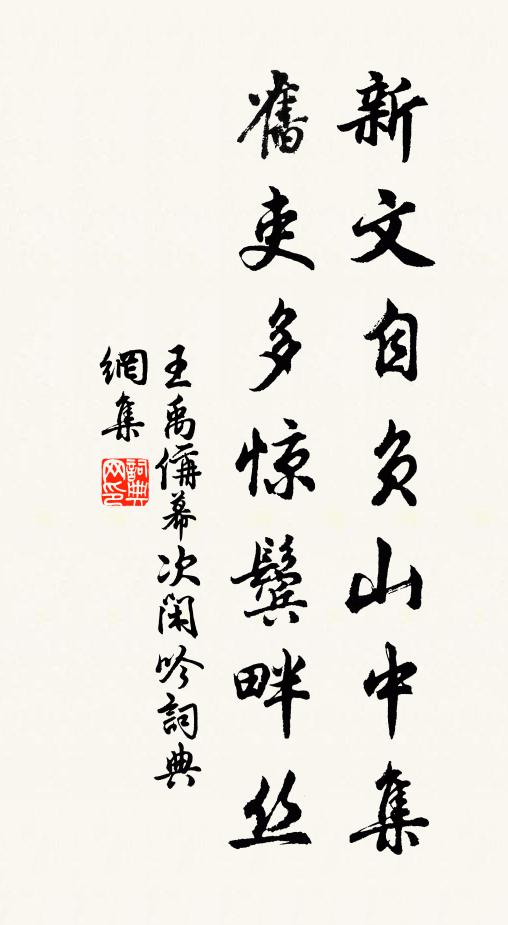 新文自负山中集
舊吏多惊鬓畔丝
王禹偁幕次闲吟詞典
網集
詞典网印